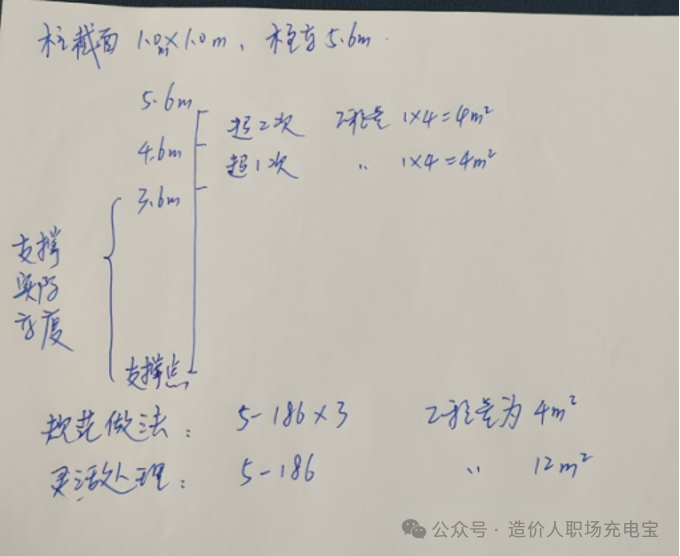 柱截面 1.0m×1.0m，柱高5.6m.
5.6m
超2次 工程量 1×4=4m²
4.6m
超1次 〃 1×4=4m²
3.6m
支撑
实际
高度
支撑点
规范做法： 5-186×3 工程量为 4m²
灵活处理： 5-186 〃 12m²
公众号·造价人职场充电宝